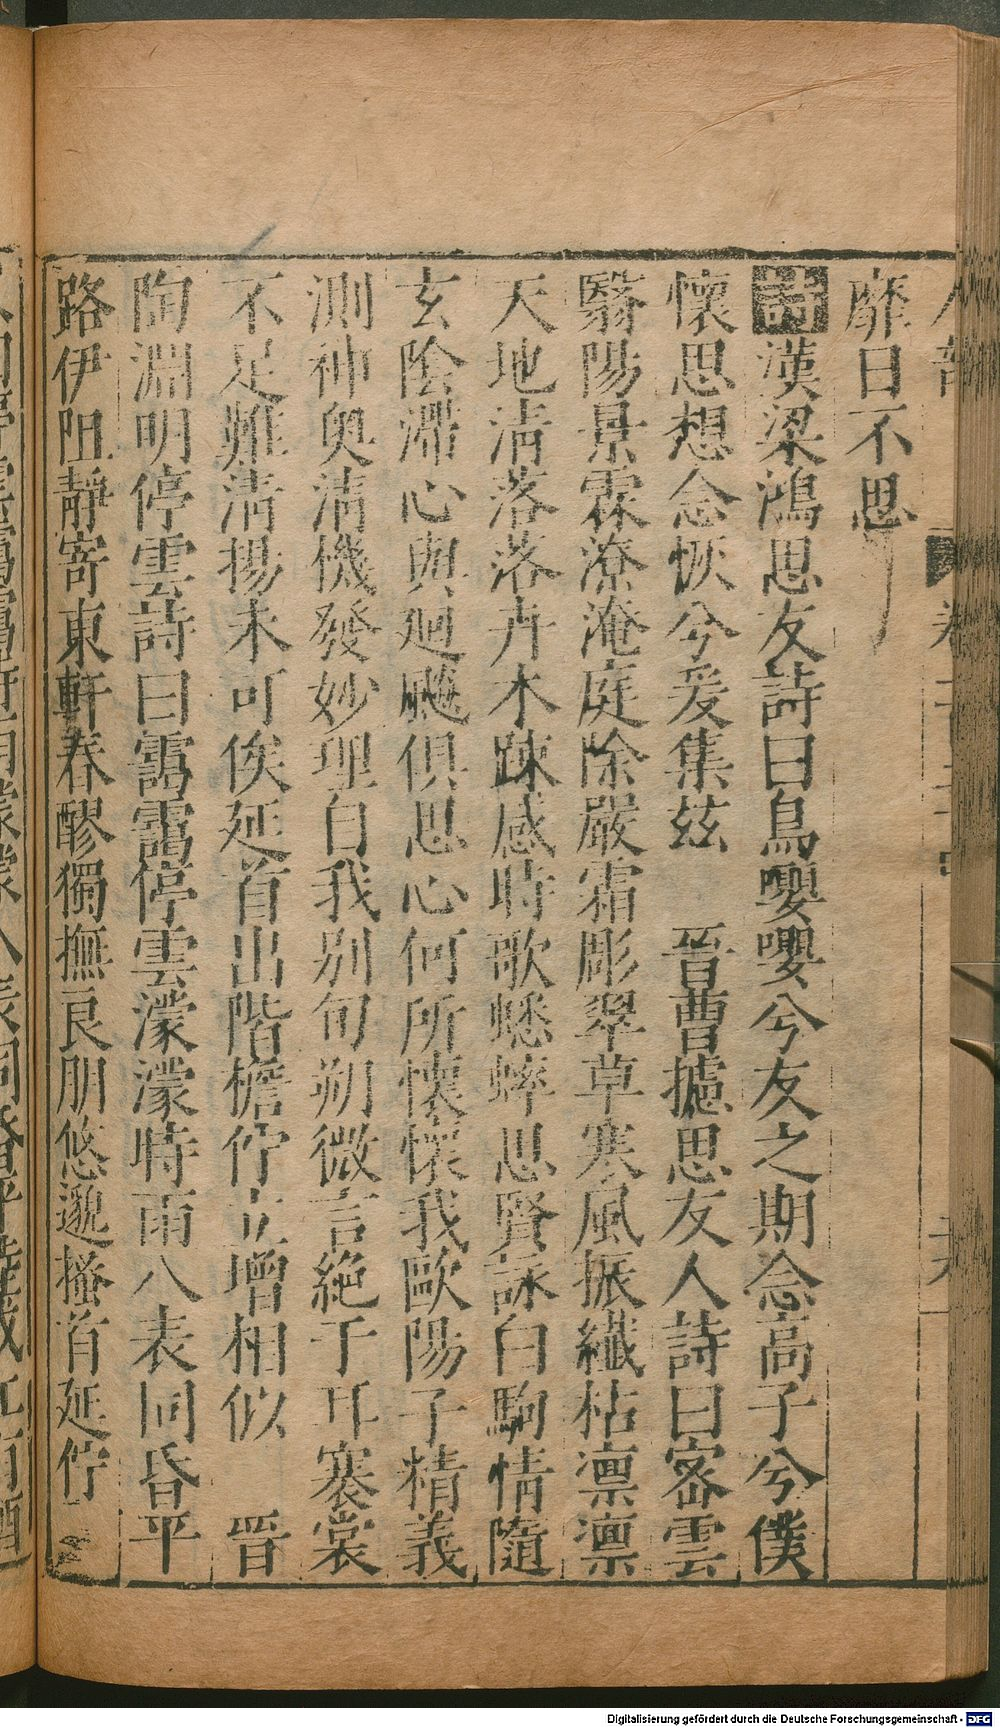 靡日不思
詩漢梁鴻思友詩曰鳥嚶嚶兮友之期念高子兮僕
懷思想念恢兮爰集茲　晉曹攄思友人詩曰密雲
翳陽景霖潦淹庭除嚴霜彫翠草寒風振纖枯凛凛
天地清落落卉木踈感時歌蟋蟀思賢詠白駒情隨
玄陰滯心與廻飈俱思心何所懷懷我歐陽子精義
測神奥清機發妙理自我別旬朔微言絶于耳褰裳
不足難清揚未可俟延首出階檐佇立增相似　晉
陶淵明停雲詩曰靄靄停雲濛濛時雨八表同昏平
路伊阻靜寄東軒春醪獨撫良朋悠邈搔首延佇
Digitalisierung gefördert durch die Deutsche Forschungsgemeinschaft - DFG